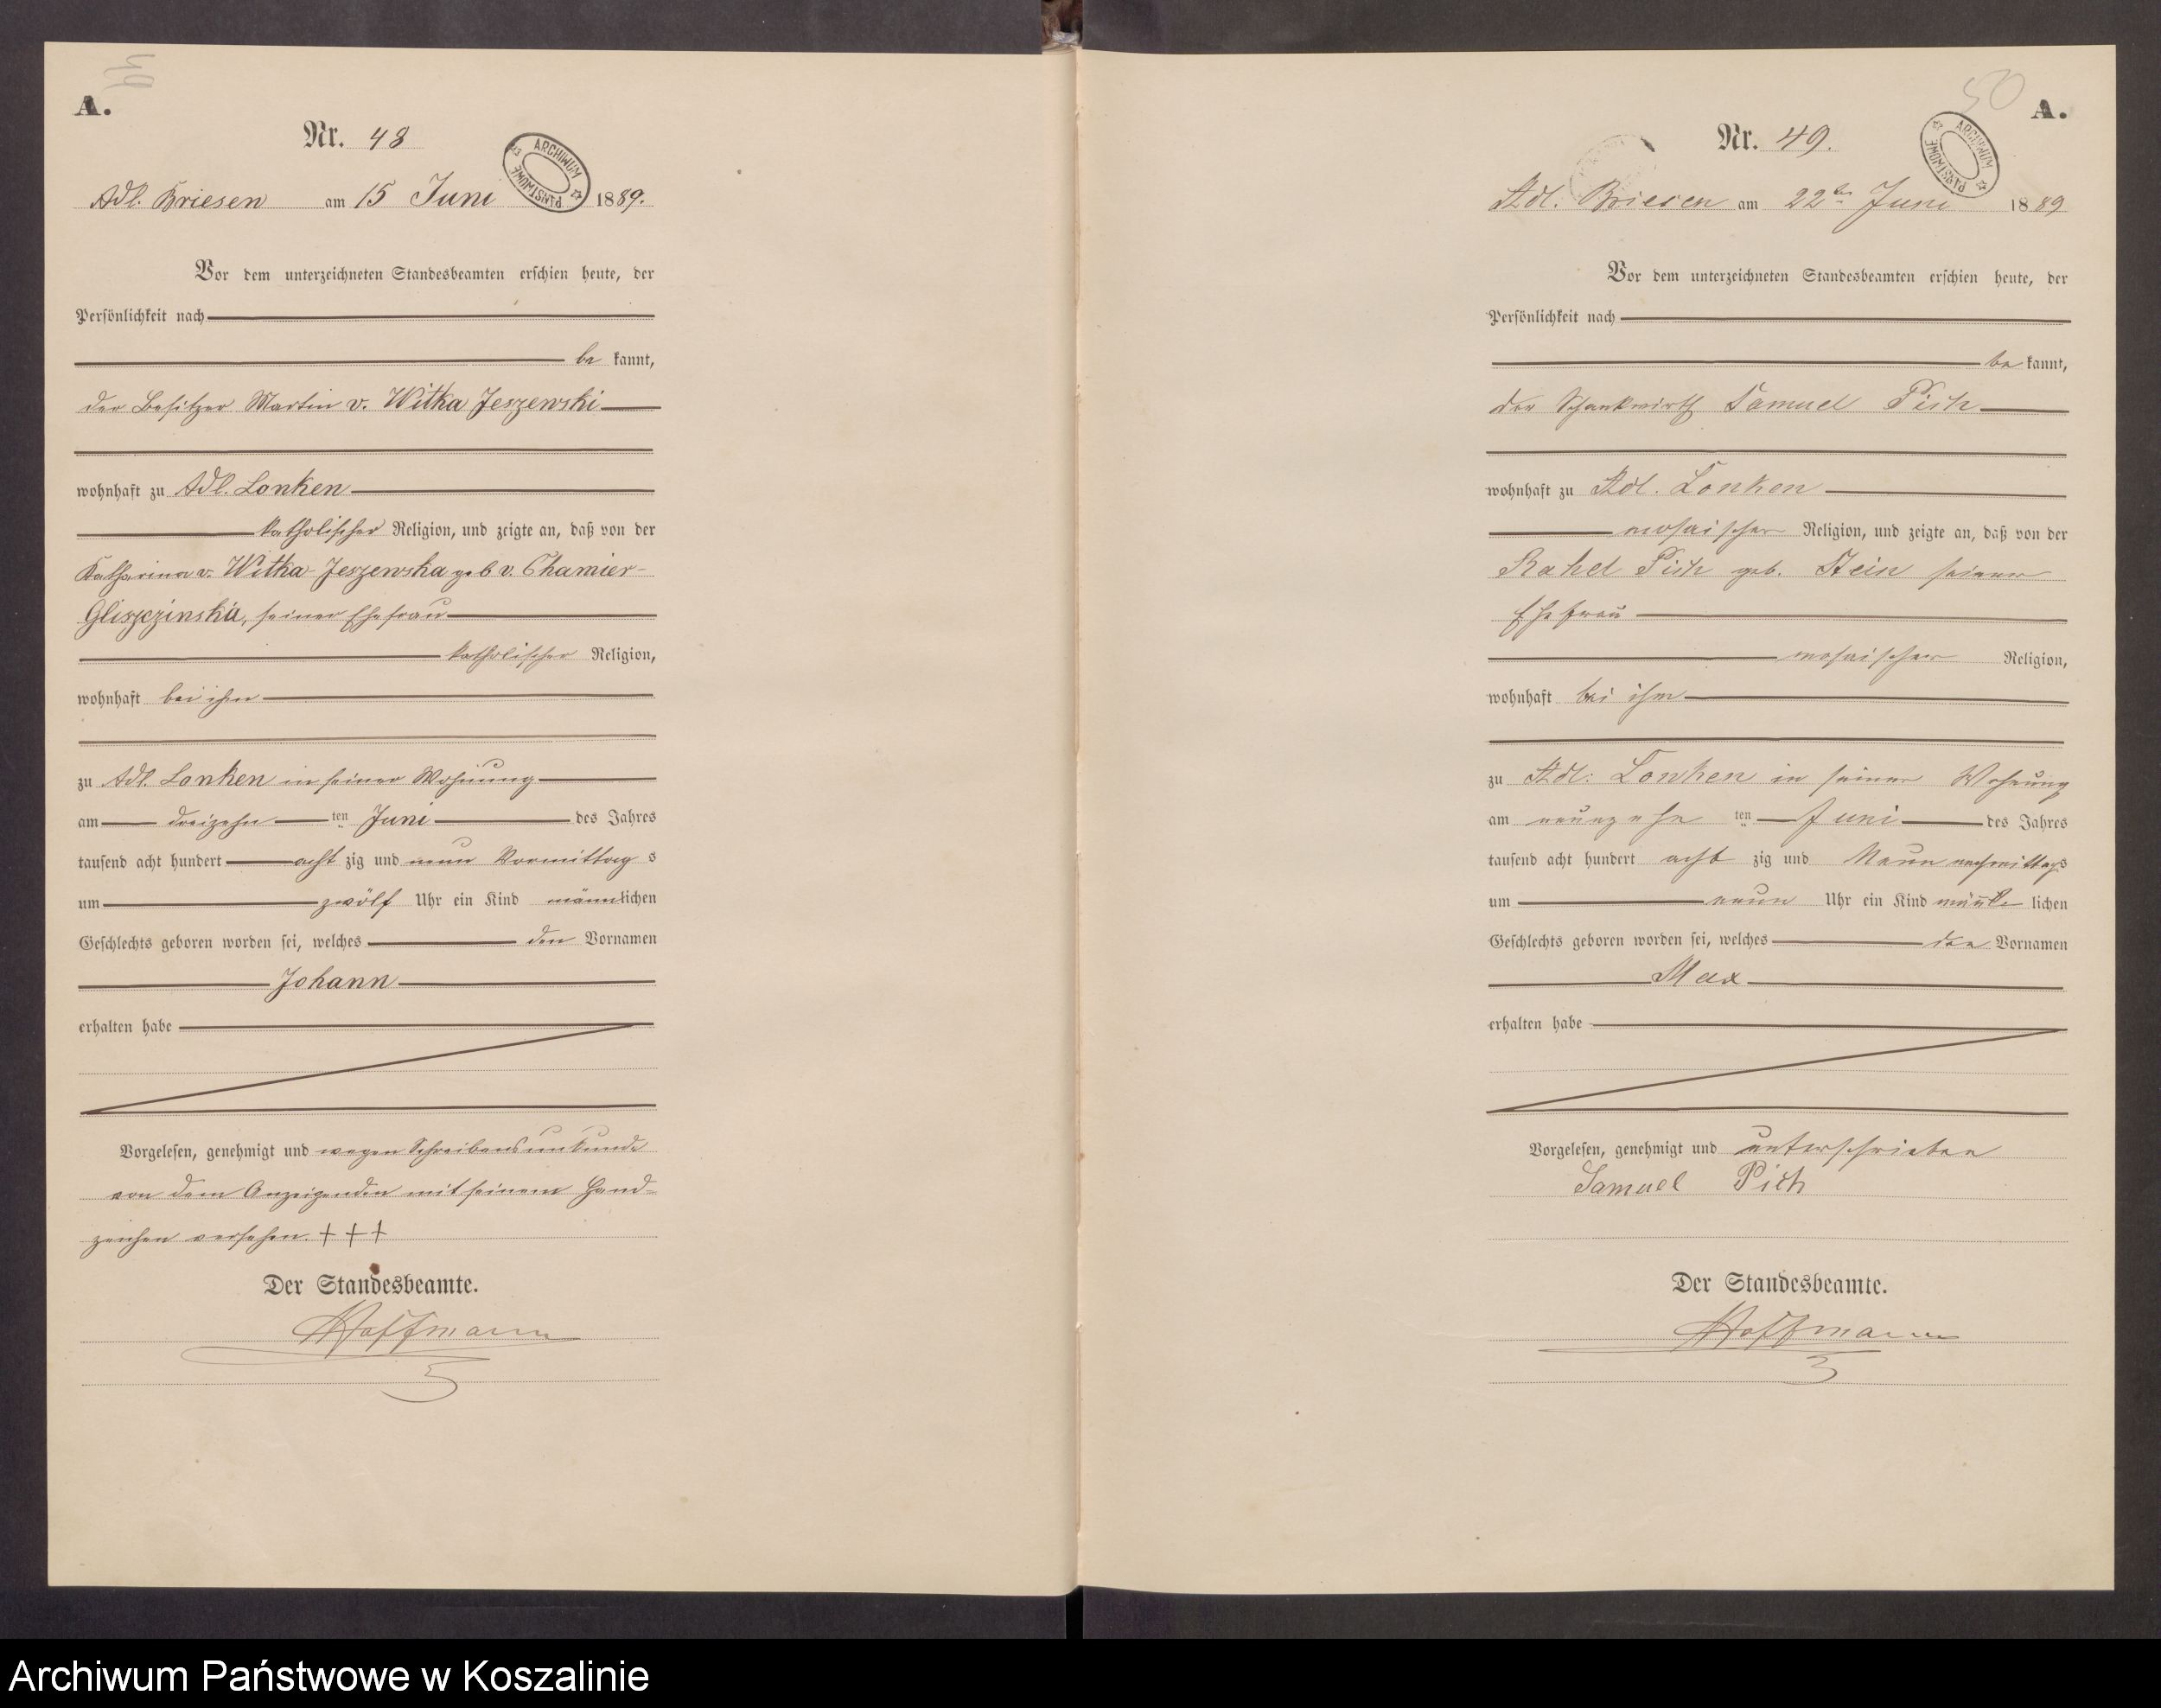 A.
Nr. 48
Adl. Briesen am 15 Juni 1889.
ARCHIWUM PAŃSTWOWE
Vor dem unterzeichneten Standesbeamten erschien heute, der
Persönlichkeit nach
be kannt,
der Besitzer Martin v. Witka Jeszewski
wohnhaft zu Adl. Lonken
katholischer Religion, und zeigte an, daß von der
Katharina v. Witka-Jeszewska geb v. Chamier-
Gliszczinska, seiner Ehefrau
katholischer Religion,
wohnhaft bei ihm
zu Adl. Lonken in seiner Wohnung
am dreizehn ten Juni des Jahres
tausend acht hundert acht zig und neun Vormittag s
um zwölf Uhr ein Kind männlichen
Geschlechts geboren worden sei, welches den Vornamen
Johann
erhalten habe
Vorgelesen, genehmigt und wegen Schreibensunkunde
von dem Anzeigenden mit seinem Hand-
zeichen versehen. + + +
Der Standesbeamte.
Hoffmann
50
A.
Nr. 49.
ARCHIWUM PAŃSTWOWE
Adl. Briesen am 22ten Juni 1889
Vor dem unterzeichneten Standesbeamten erschien heute, der
Persönlichkeit nach
be kannt,
der Schankwirth Samuel Pich
wohnhaft zu Adl. Lonken
mosaischer Religion, und zeigte an, daß von der
Rahel Pich geb. Stein seiner
Ehefrau
mosaischer Religion,
wohnhaft bei ihm
zu Adl: Lonken in seiner Wohnung
am neunzehn ten Juni des Jahres
tausend acht hundert acht zig und Neun nachmittags
um neun Uhr ein Kind männ lichen
Geschlechts geboren worden sei, welches den Vornamen
Max
erhalten habe
Vorgelesen, genehmigt und unterschrieben
Samuel Pich
Der Standesbeamte.
Hoffmann
Archiwum Państwowe w Koszalinie